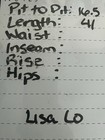 Pit to Pit: 16.5
Length: 41
Waist:
Inseam:
Rise:
Hips:
Lisa Lo